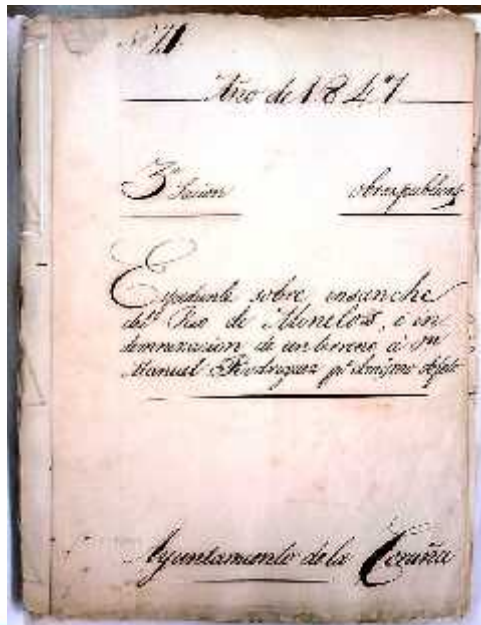 Nº 71
Año de 1847
3ª Seccion Obras publicas
Expediente sobre ensanche
del Rio de Monelos, é in
demnizacion de un terreno á Dn
Manuel Rodriguez pª el mismo objeto
Ayuntamiento de la Coruña